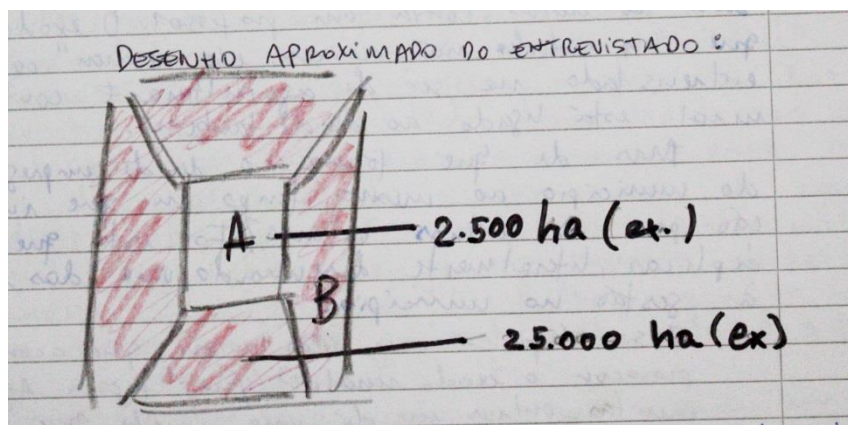 DESENHO APROXIMADO DO ENTREVISTADO:
A 2.500 ha (ex.)
B
25.000 ha (ex)